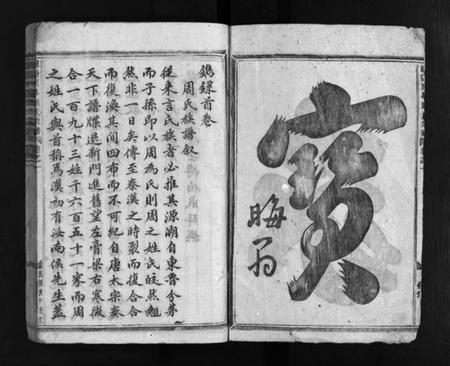 寶
晦翁
鐫錄首卷
周氏族譜叙
從来言氏族者必推其源湖自東魯分茅
而子孫即以周為氏則周之姓氏皎然魁
然非一日矣傳至秦漢之時裂而復合合
而復渙其間四布而不可紀自唐太宗奏
天下譜牒退新門進舊望左膏梁右寒微
合一百九十三姓千六百五十一家而周
之姓氏與首稱焉漢初有汝南侯先生蓋